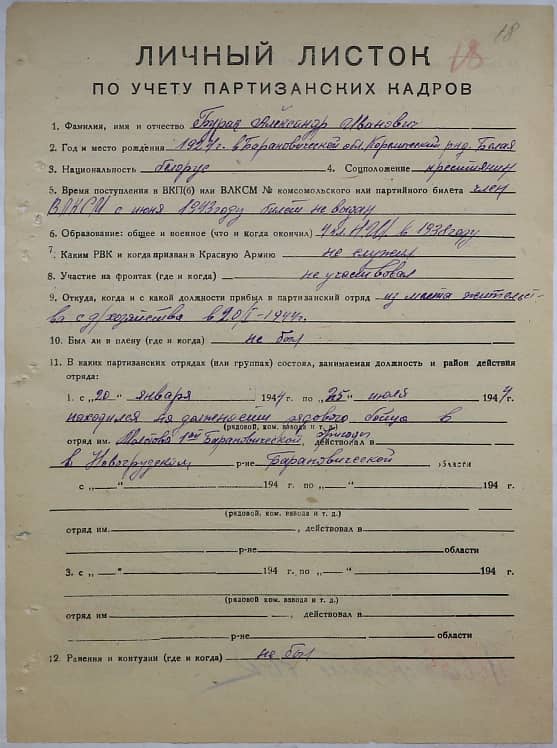 18
18
ЛИЧНЫЙ ЛИСТОК
ПО УЧЕТУ ПАРТИЗАНСКИХ КАДРОВ
1. Фамилия, имя и отчество Александр Иванович
2. Год и место рождения 1927 г. в Барановической обл. Кореличский
3. Национальность белорус 4. Соцположение крестянин
5. Время поступления в ВКП(б) или ВЛКСМ № комсомольского или партийного билета член
ВЛКСМ с июня 1943 году билет не выдан
6. Образование: общее и военное (что и когда окончил) 4 кл. в 1938 году
7. Каким РВК и когда призван в Красную Армию не служил
8. Участие на фронтах (где и когда) не участвовал
9. Откуда, когда и с какой должности прибыл в партизанский отряд из места жительст-
ва с д/хозяйства в 20/I-1944 г.
10. Был ли в плену (где и когда) не был
11. В каких партизанских отрядах (или группах) состоял, занимаемая должность и район действия
отряда:
1. с „20" января 1944 г. по „25" июля 1944 г.
находился на должности рядового бойца в
(рядовой, ком. взвода и т. д.)
отряд им. 1ой Барановической, действовал в бригады
в Новогрудском р-не Барановической области
с „—"—194 г. по „—"—194 г.
(рядовой, ком. взвода и т. д.)
отряд им, действовал в
р-не области
3. с „—"—194 г. по „—"—194 г.
(рядовой, ком. взвода и т. д.)
отряд им, действовал в
р-не области
12. Ранения и контузии (где и когда) не был